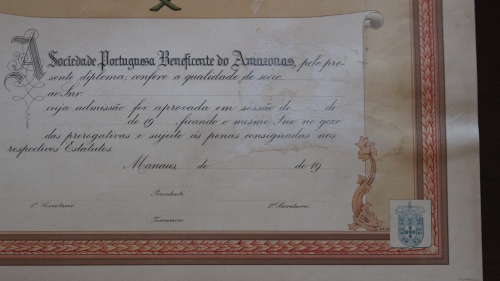 A Sociedade Portuguesa Beneficente do Amazonas, pelo pre-
sente diploma, confere a qualidade de socio
ao Snr.
cuja admissão foi aprovada em sessão de de
de 19 , ficando o mesmo Snr. no gozo
das prerogativas e sujeito ás penas consignadas nos
respectivos Estatutos.
Manaus, de de 19
Presidente
1º Secretario 2º Secretario
Tesoureiro